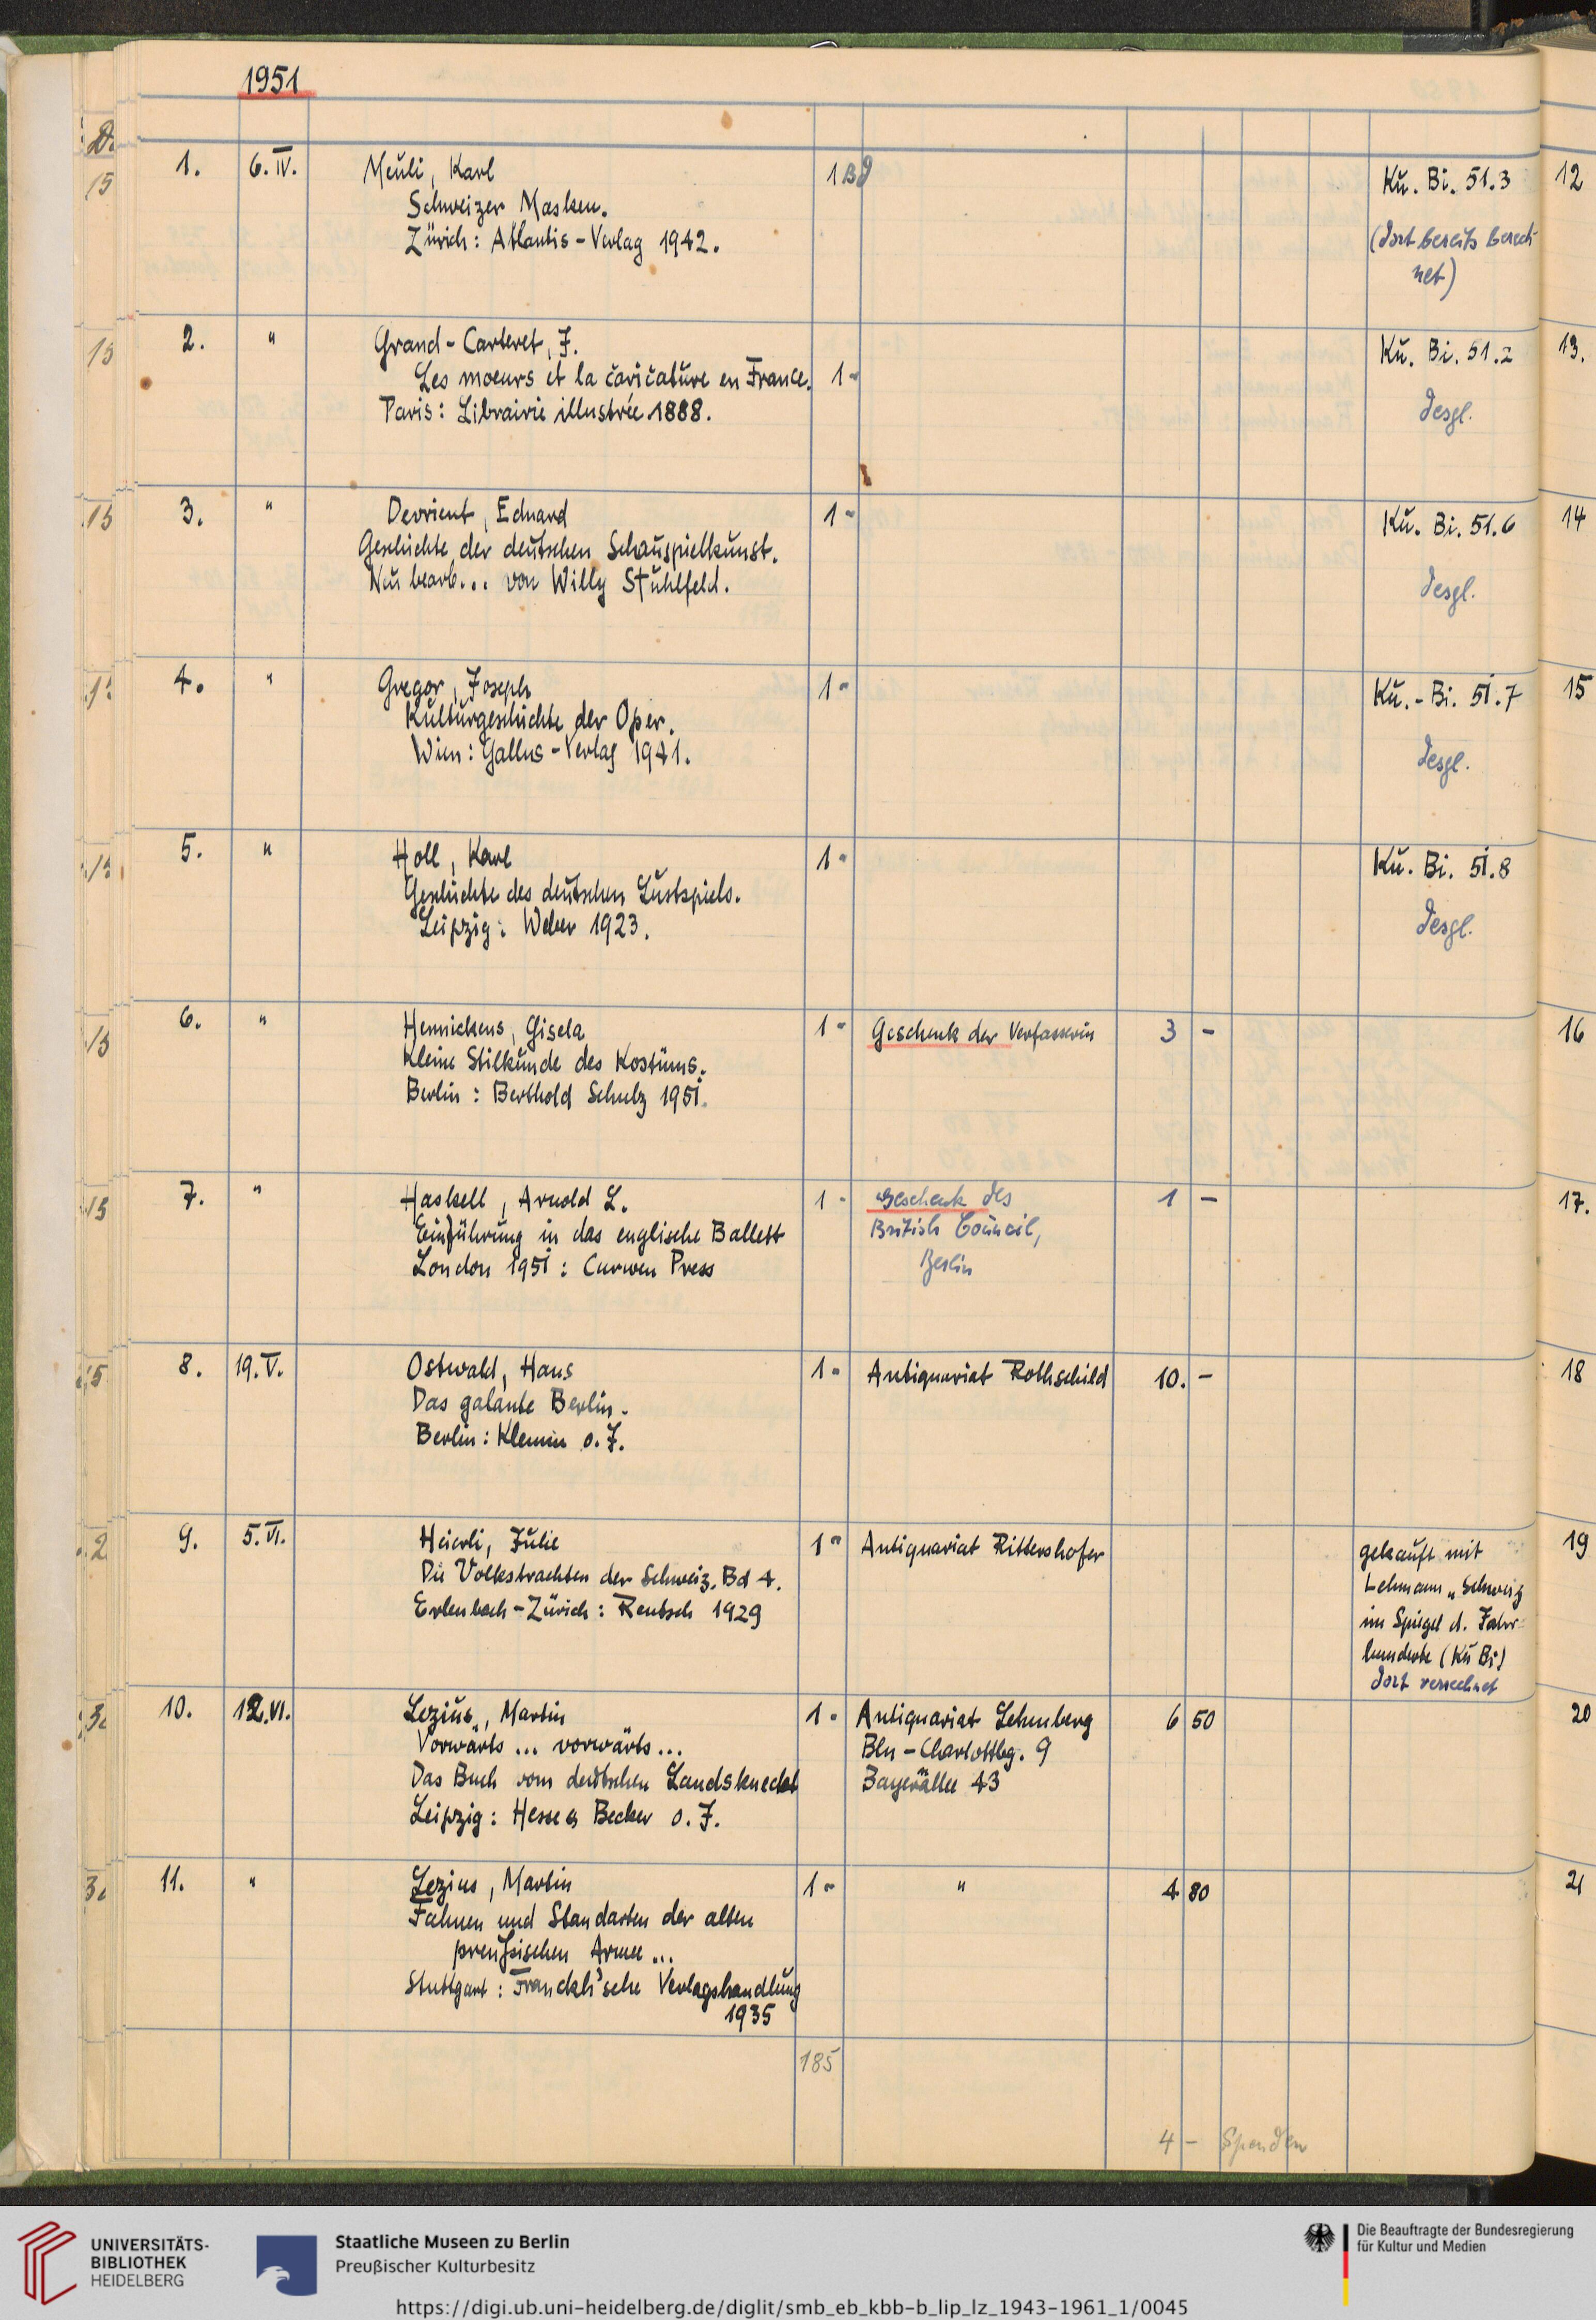 1951
1. 6. IV. Meuli, Karl 1 Bd Kü. Bi. 51.3
Schweizer Masken.
Zürich: Atlantis-Verlag 1942. (dort bereits berech-
net)
2. " Grand-Carteret, J. Kü. Bi. 51.2
Les moeurs et la caricature en France. 1 "
Paris: Librairie illustrée 1888. desgl.
3. " Devrient, Eduard 1 " Kü. Bi. 51.6
Geschichte der deutschen Schauspielkunst.
Neu bearb... von Willy Stuhlfeld. desgl.
4. " Gregor, Joseph 1 " Kü.-Bi. 51.7
Kulturgeschichte der Oper.
Wien: Gallus-Verlag 1941. desgl.
5. " Holl, Karl 1 " Kü. Bi. 51.8
Geschichte des deutschen Lustspiels.
Leipzig: Weber 1923. desgl.
6. " Hennickens, Gisela 1 " Geschenk der Verfasserin 3 -
Kleine Stilkunde des Kostüms.
Berlin: Berthold Schulz 1951.
7. " Haskell, Arnold L. 1 " Geschenk des 1 -
Einführung in das englische Ballett British Council,
London 1951: Curwen Press Berlin
8. 19. V. Ostwald, Hans 1 " Antiquariat Rothschild 10. -
Das galante Berlin.
Berlin: Klemm o. J.
9. 5. VI. Heierli, Julie 1 " Antiquariat Rittershofer gekauft mit
Die Volkstrachten der Schweiz. Bd 4. Lehmann „Schweiz
Erlenbach-Zürich: Rentsch 1929 im Spiegel d. Jahr-
hunderte (Kü Bi)
dort verrechnet
10. 12. VI. Lezius, Martin 1 " Antiquariat Lehmberg 6 50
Vorwärts ... vorwärts ... Bln-Charlottbg. 9
Das Buch vom deutschen Landsknecht Bayernallee 43
Leipzig: Hesse & Becker o. J.
11. " Lezius, Martin 1 " " 4 80
Fahnen und Standarten der alten
preußischen Armee ...
Stuttgart: Franckh'sche Verlagshandlung
1935
185
4 - Spenden
12
13.
14
15
16
17.
18
19
20
21
UNIVERSITÄTS-
BIBLIOTHEK
HEIDELBERG
Staatliche Museen zu Berlin
Preußischer Kulturbesitz
Die Beauftragte der Bundesregierung
für Kultur und Medien
https://digi.ub.uni-heidelberg.de/diglit/smb_eb_kbb-b_lip_lz_1943-1961_1/0045